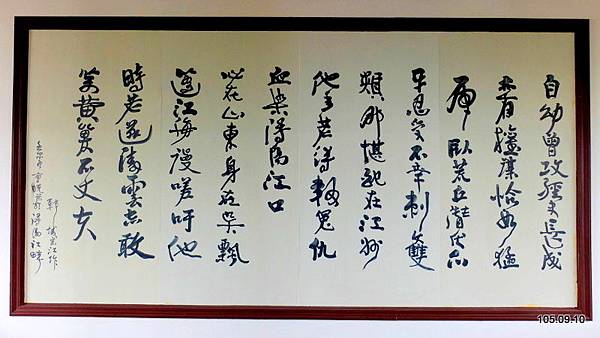 自幼曾攻經史長成
亦有權謀恰如猛
虎臥荒丘潛伏爪
牙忍受不幸刺雙
頰那堪配在江州
他年若得報冤仇
血染潯陽江口
心在山東身在吳飄
蓬江海謾嗟吁他
時若遂凌雲志敢
笑黃巢不丈夫
鄆城宋江作
潯陽江畔
105.09.10